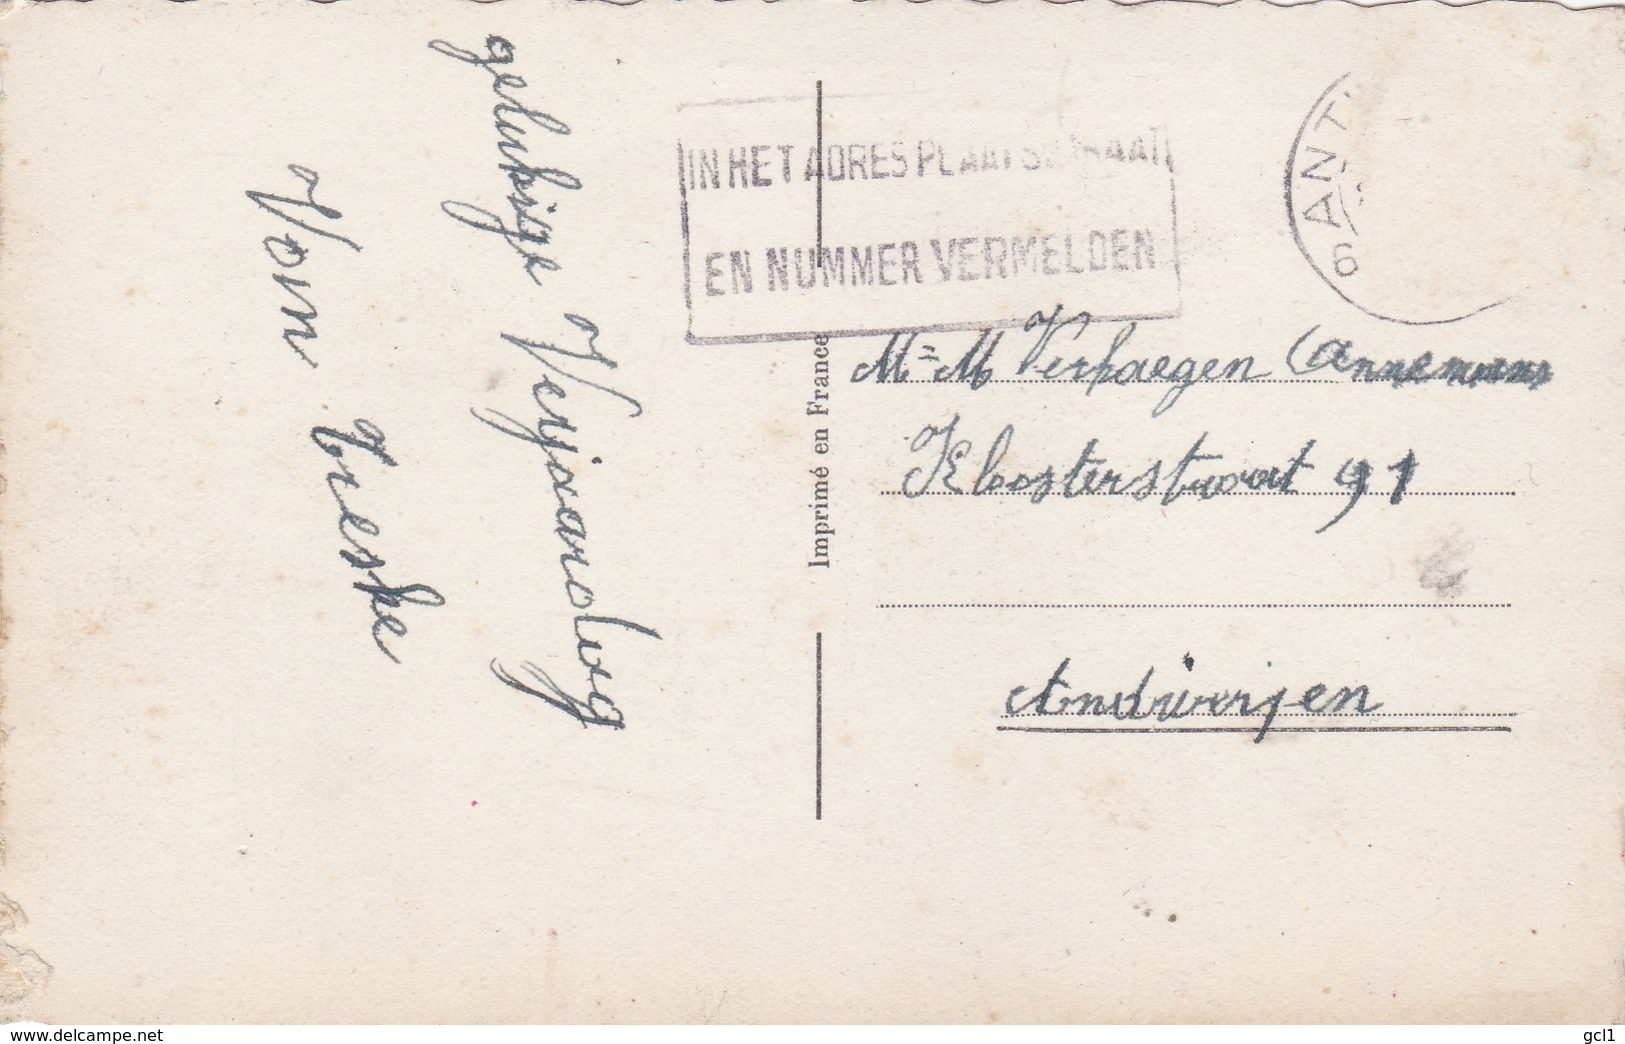 gelukkige Verjaardag
Von Treske
IN HET ADRES PLAATS STRAAT
EN NUMMER VERMELDEN
ANT
6
Imprimé en France
Mr = M Verhaegen (Annemans
Kloosterstraat 91
Andwerpen
www.delcampe.net
gcl1